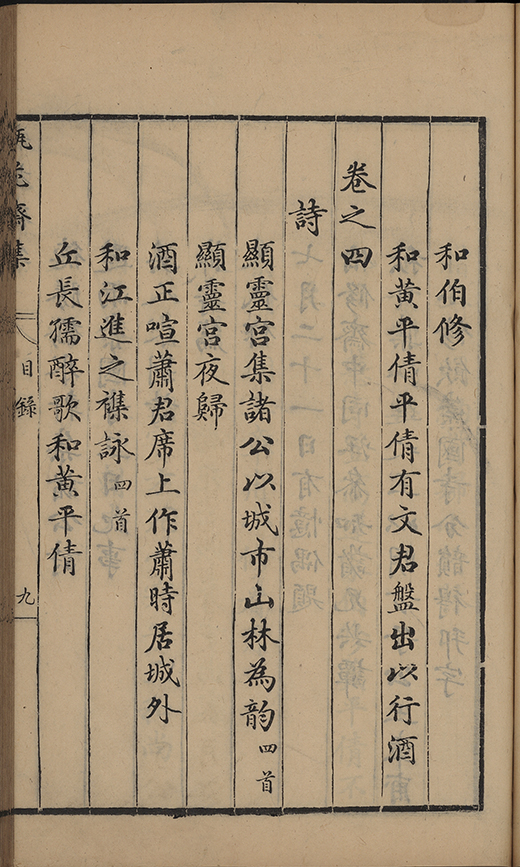 和伯修
和黃平倩平倩有文君盤出以行酒
卷之四
詩
顯靈宮集諸公以城市山林為韵四首
顯靈宮夜歸
酒正喧蕭君席上作蕭時居城外
和江進之襍詠四首
丘長孺醉歌和黃平倩
瓶花齋集
目錄
九